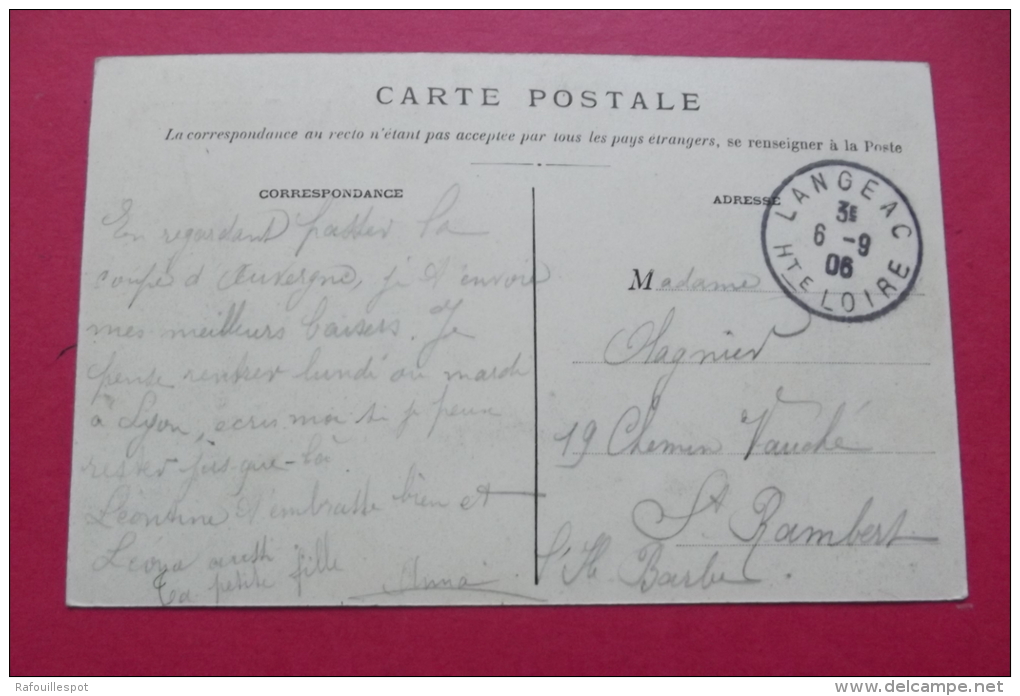 CARTE POSTALE
La correspondance au recto n'étant pas acceptée par tous les pays étrangers, se renseigner à la Poste
CORRESPONDANCE
En regardant passer la
coupe d'Auvergne, je t'envoie
mes meilleurs baisers. Je
pense rentrer lundi ou mardi
à Lyon, écris moi si je peux
rester jus-que-là.
Léontine t'embrasse bien et
aussi
Ta petite fille
Anna
ADRESSE
LANGEAC
3E
6 -9
06
HTE LOIRE
Madame
Magnier
19 Chemin Vauché
St Rambert
l'Ile Barbe.
Rafouillespot
www.delcampe.net